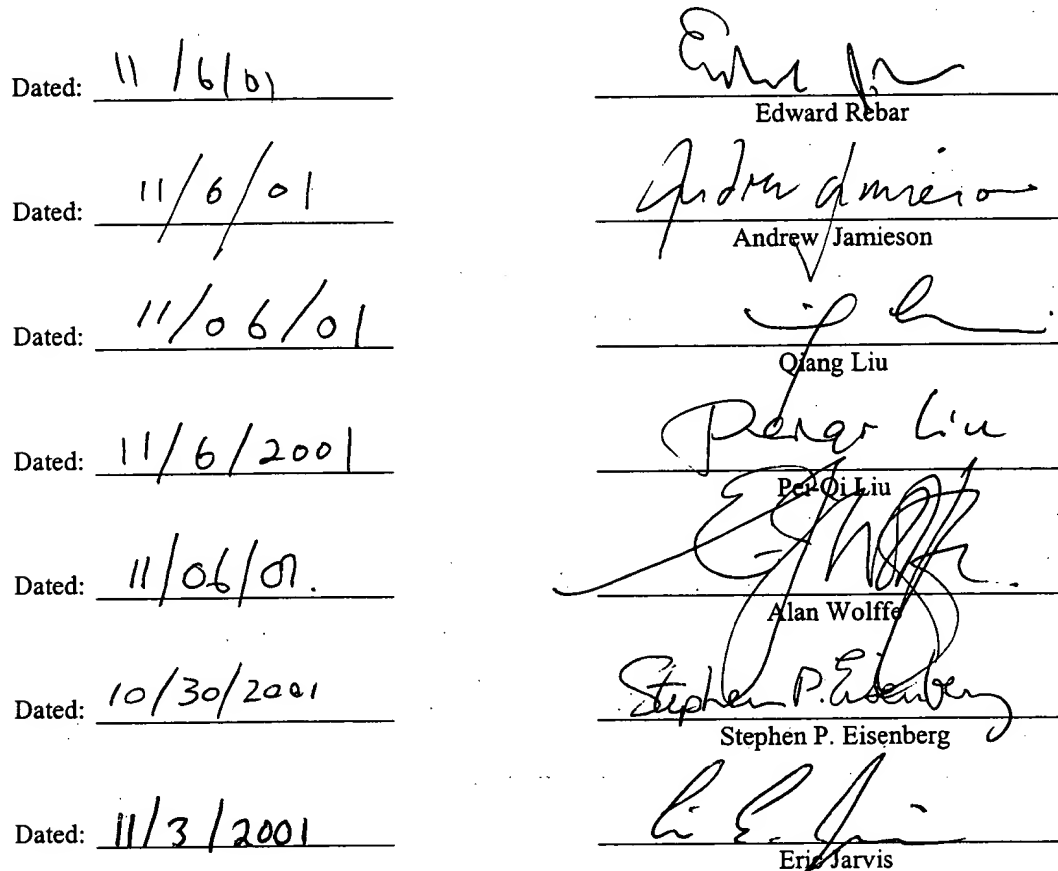 Dated: 11/6/01
Edward Rebar
Dated: 11/6/01
Andrew Jamieson
Dated: 11/06/01
Qiang Liu
Dated: 11/6/2001 Peiqi Liu
Pei-Qi Liu
Dated: 11/06/01.
Alan Wolffe
Dated: 10/30/2001 Stephen P. Eisenberg
Stephen P. Eisenberg
Dated: 11/3/2001
Eric Jarvis